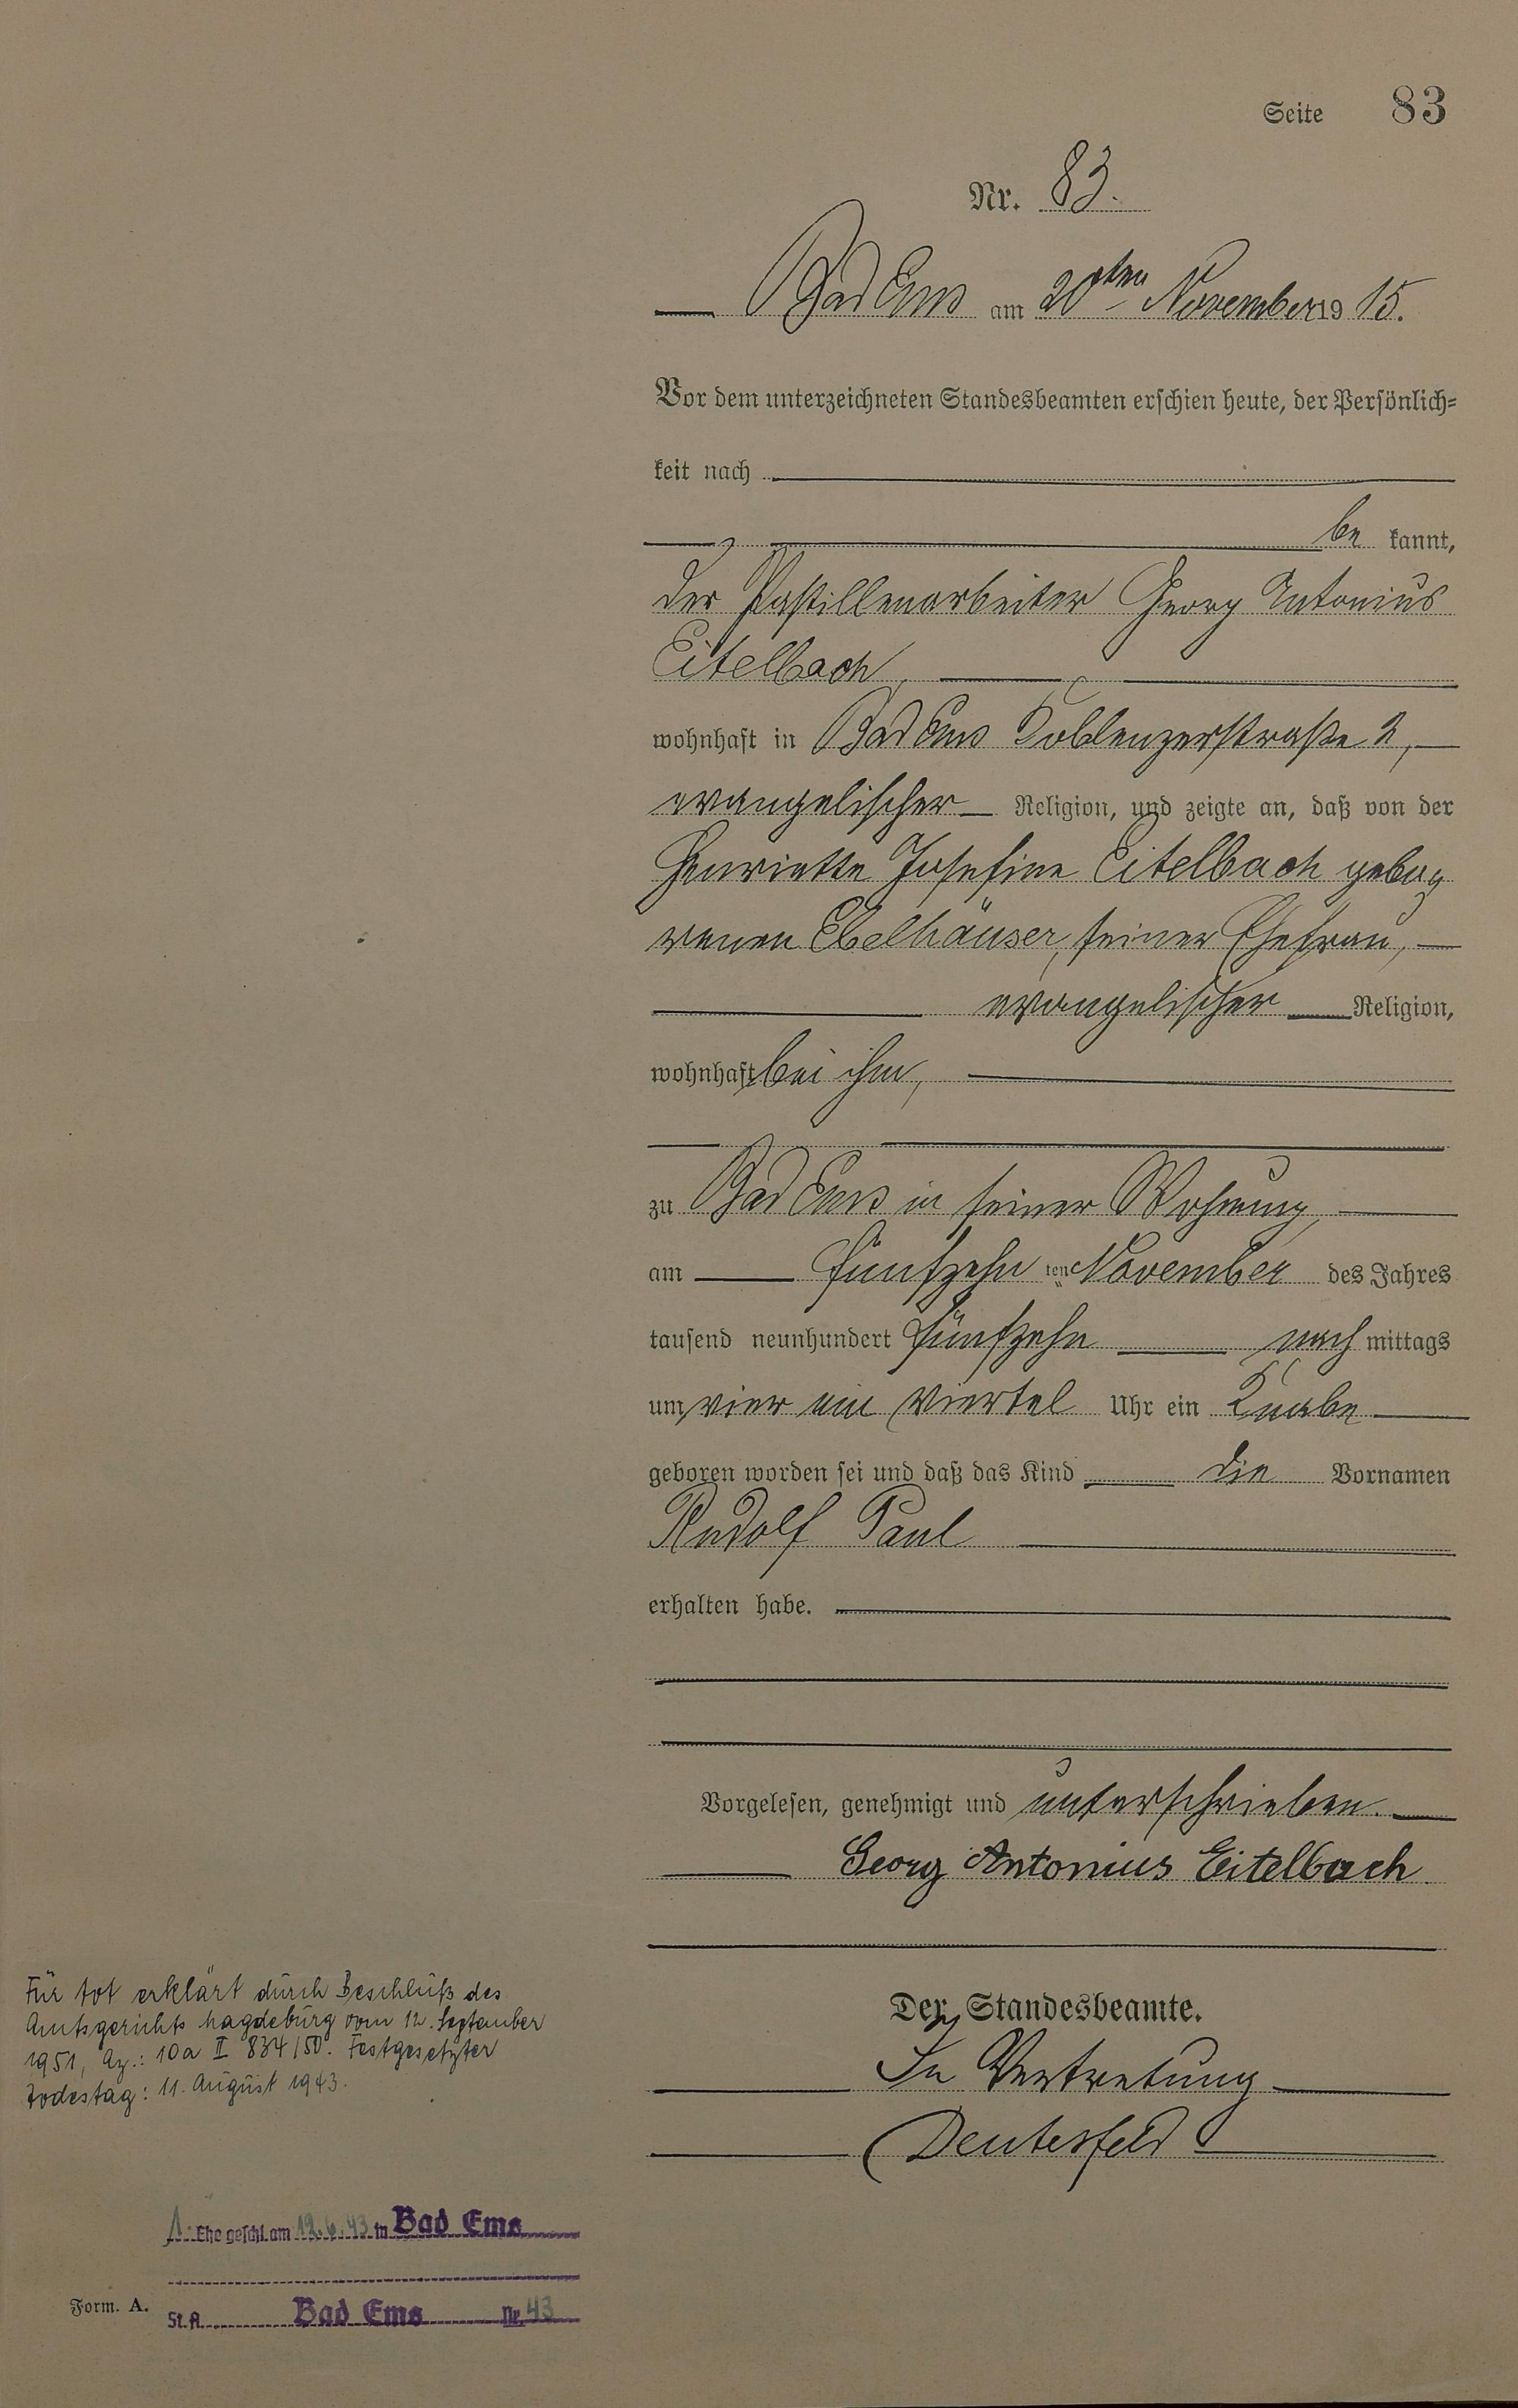 Seite 83
Nr. 83.
Bad Ems am 20ten November 1915.
Vor dem unterzeichneten Standesbeamten erschien heute, der Persönlich=
keit nach
be kannt,
der Pastillenarbeiter Georg Antonius
Eitelbach,
wohnhaft in Bad Ems Koblenzerstraße 2,
evangelischer Religion, und zeigte an, daß von der
Henriette Josefine Eitelbach gebo=
renen Ebelhäuser, seiner Ehefrau,
evangelischer Religion,
wohnhaft bei ihm,
zu Bad Ems in seiner Wohnung,
am fünfzehn ten November des Jahres
tausend neunhundert fünfzehn nach mittags
um vier ein viertel Uhr ein Knabe
geboren worden sei und daß das Kind die Vornamen
Rudolf Paul
erhalten habe.
Vorgelesen, genehmigt und unterschrieben.
Georg Antonius Eitelbach.
Der Standesbeamte.
In Vertretung
Deutesfeld
Für tot erklärt durch Beschluß des
Amtsgerichts Magdeburg vom 12. September
1951, Az.: 10a II 834/50. Festgesetzter
Todestag: 11. August 1943.
1. Ehe geschl. am 12.6.43 in Bad Ems
St. A. Bad Ems Nr. 43
Form. A.